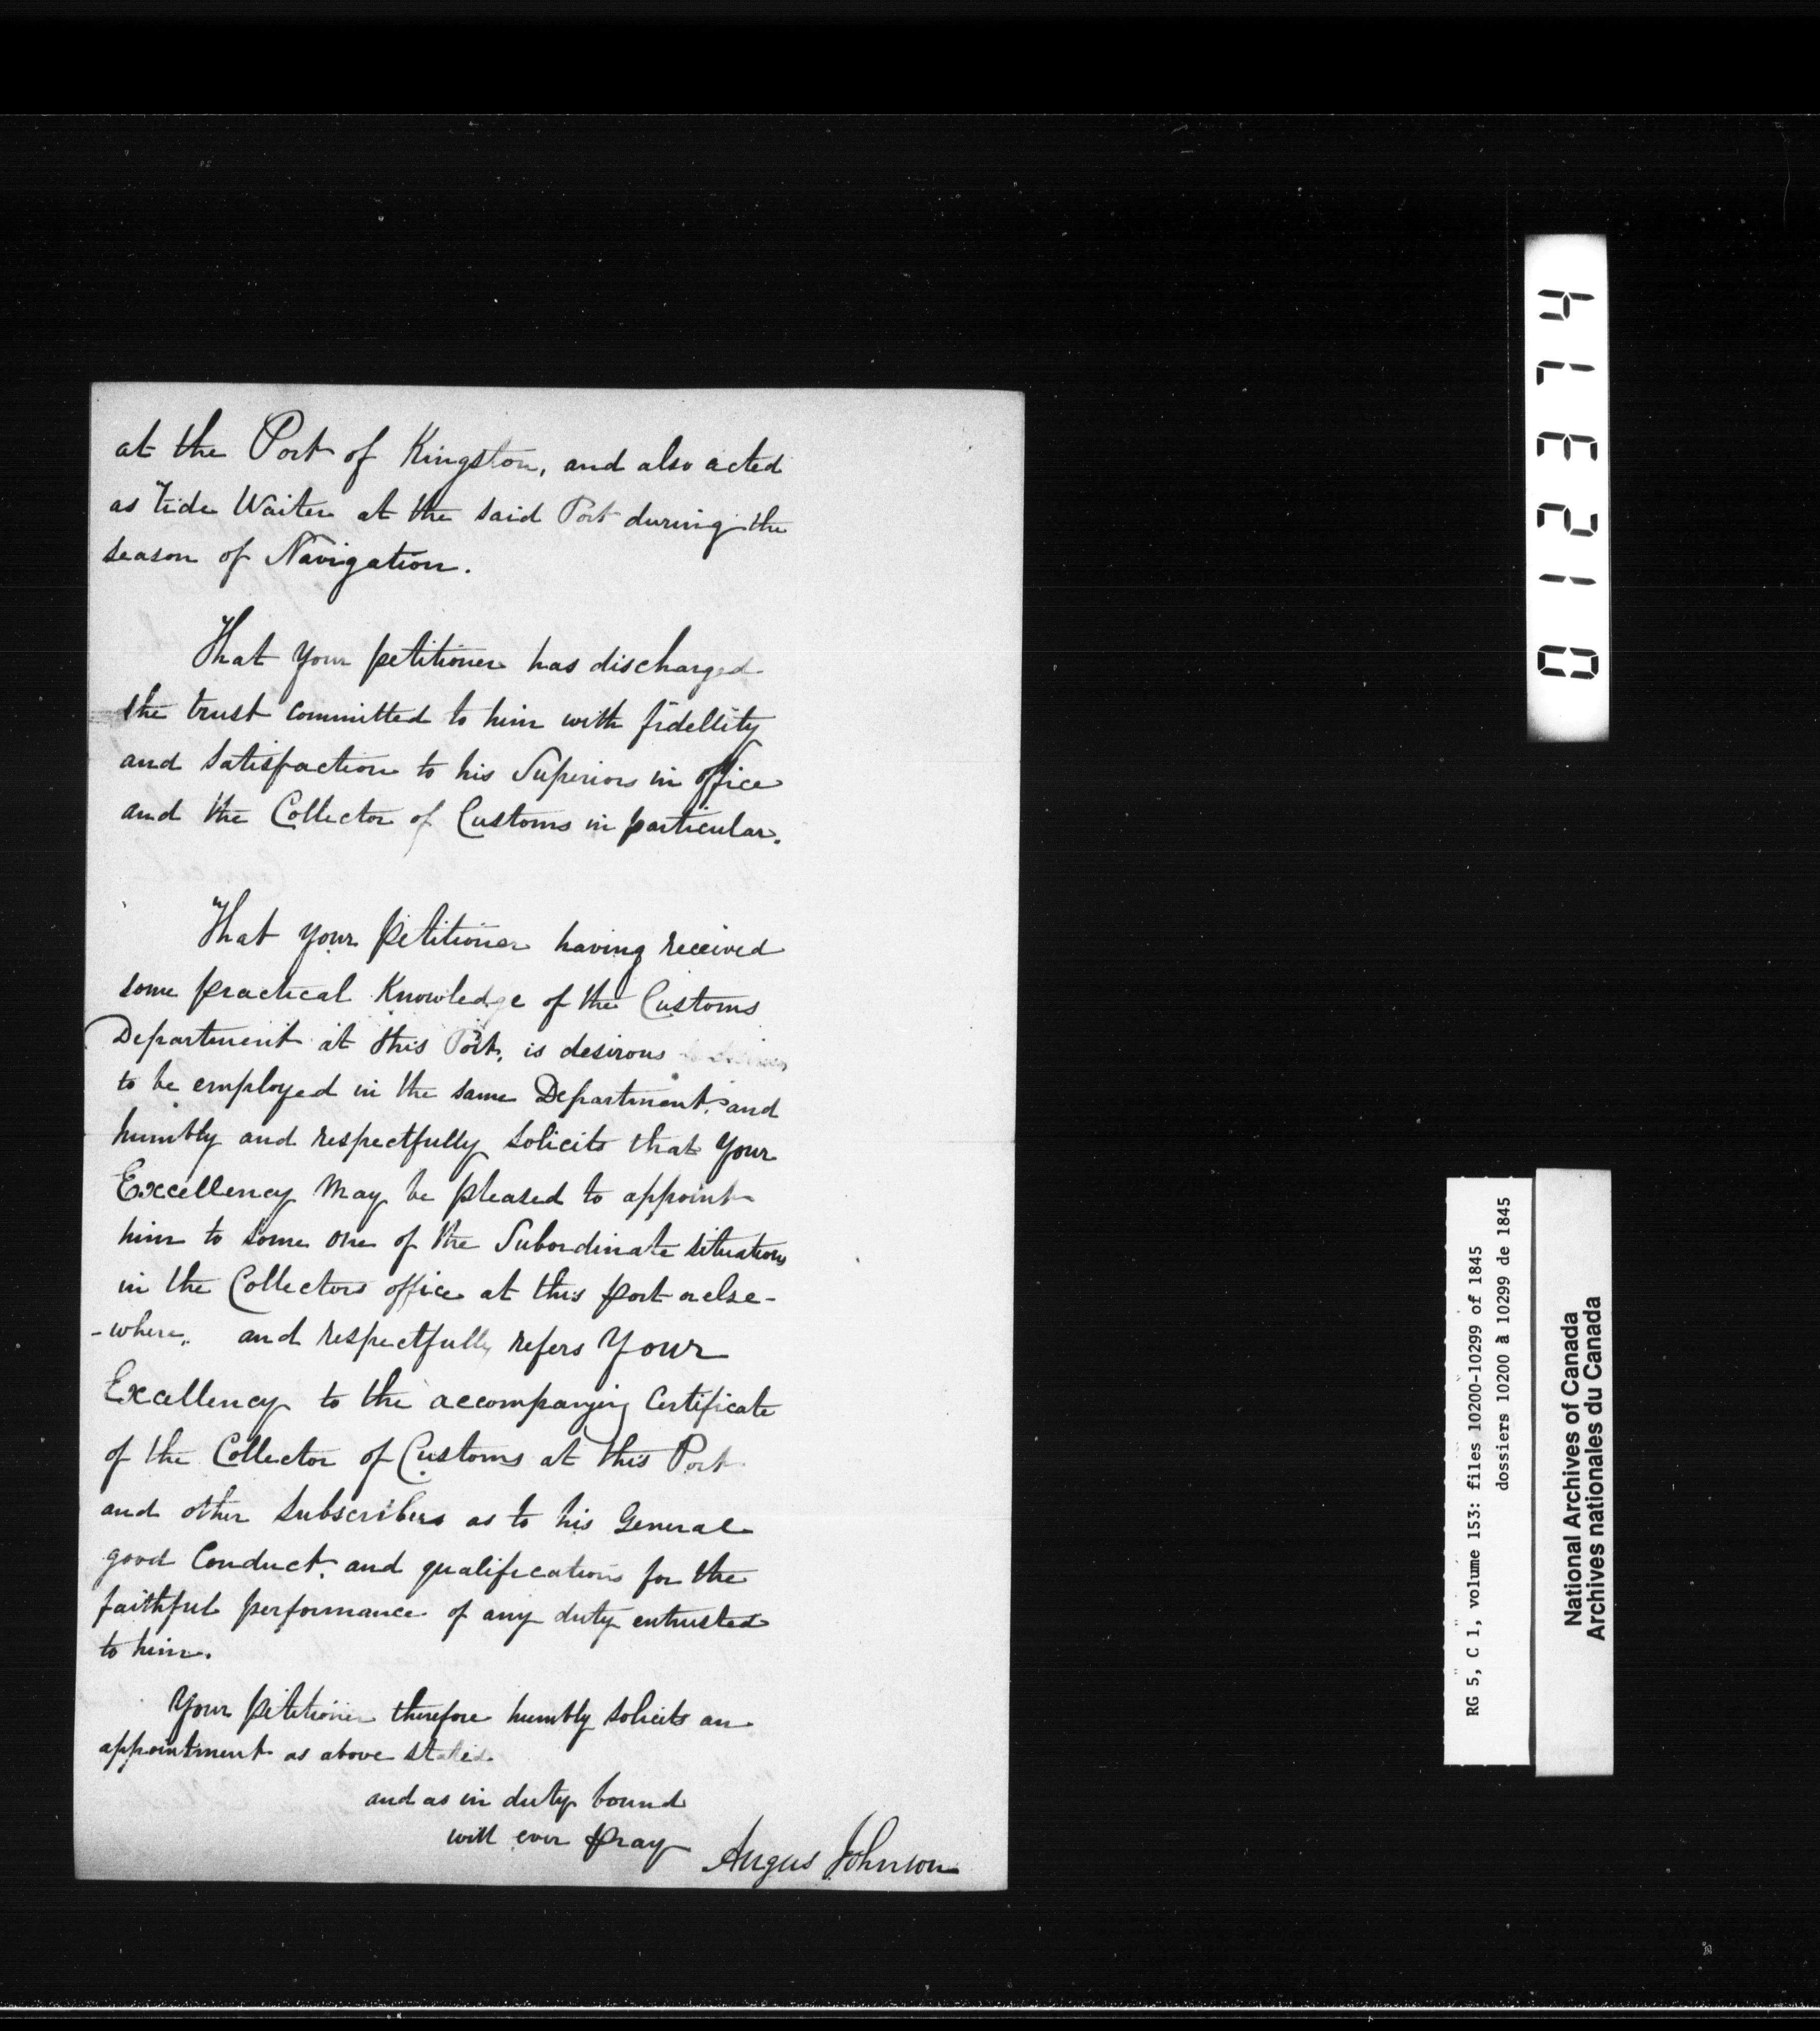 at the Port of Kingston, and also acted
as Tide Waiter at the said Port during the
season of Navigation.
That your petitioner has discharged
the trust committed to him with fidellity
and satisfaction to his Superiors in office
and the Collector of Customs in particular.
That your petitioner having received
some practical Knowledge of the Customs
Department at this Port, is desirous
to be employed in the same Department, and
humbly and respectfully solicits that your
Excellency may be pleased to appoint
him to some one of the Subordinate situations
in the Collectors office at this port or else-
-where, and respectfully refers Your
Excellency to the accompanying Certificate
of the Collector of Customs at this Port
and other subscribers as to his General
good Conduct, and qualifications for the
faithful performance of any duty entrusted
to him.
Your petitioner therefore humbly solicits an
appointment as above stated
and as in duty bound
will ever pray
Angus Johnson
012374
RG 5, C 1, volume 153: files 10200-10299 of 1845
dossiers 10200 à 10299 de 1845
National Archives of Canada
Archives nationales du Canada